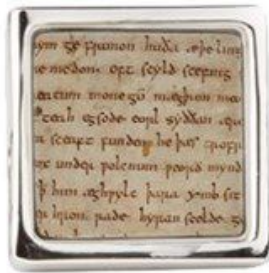 ym ge frunon huða æþeling
e medon. oft scyld scefing
eatum monegū mægþum meo
teah egsode eorl syððan ære
sceaft funden he þæs frofr
ox under ƿolcnum ƿeorð mynd
ꝥ him æghƿylc þara ymb sit
er hron rade hyran scolde go